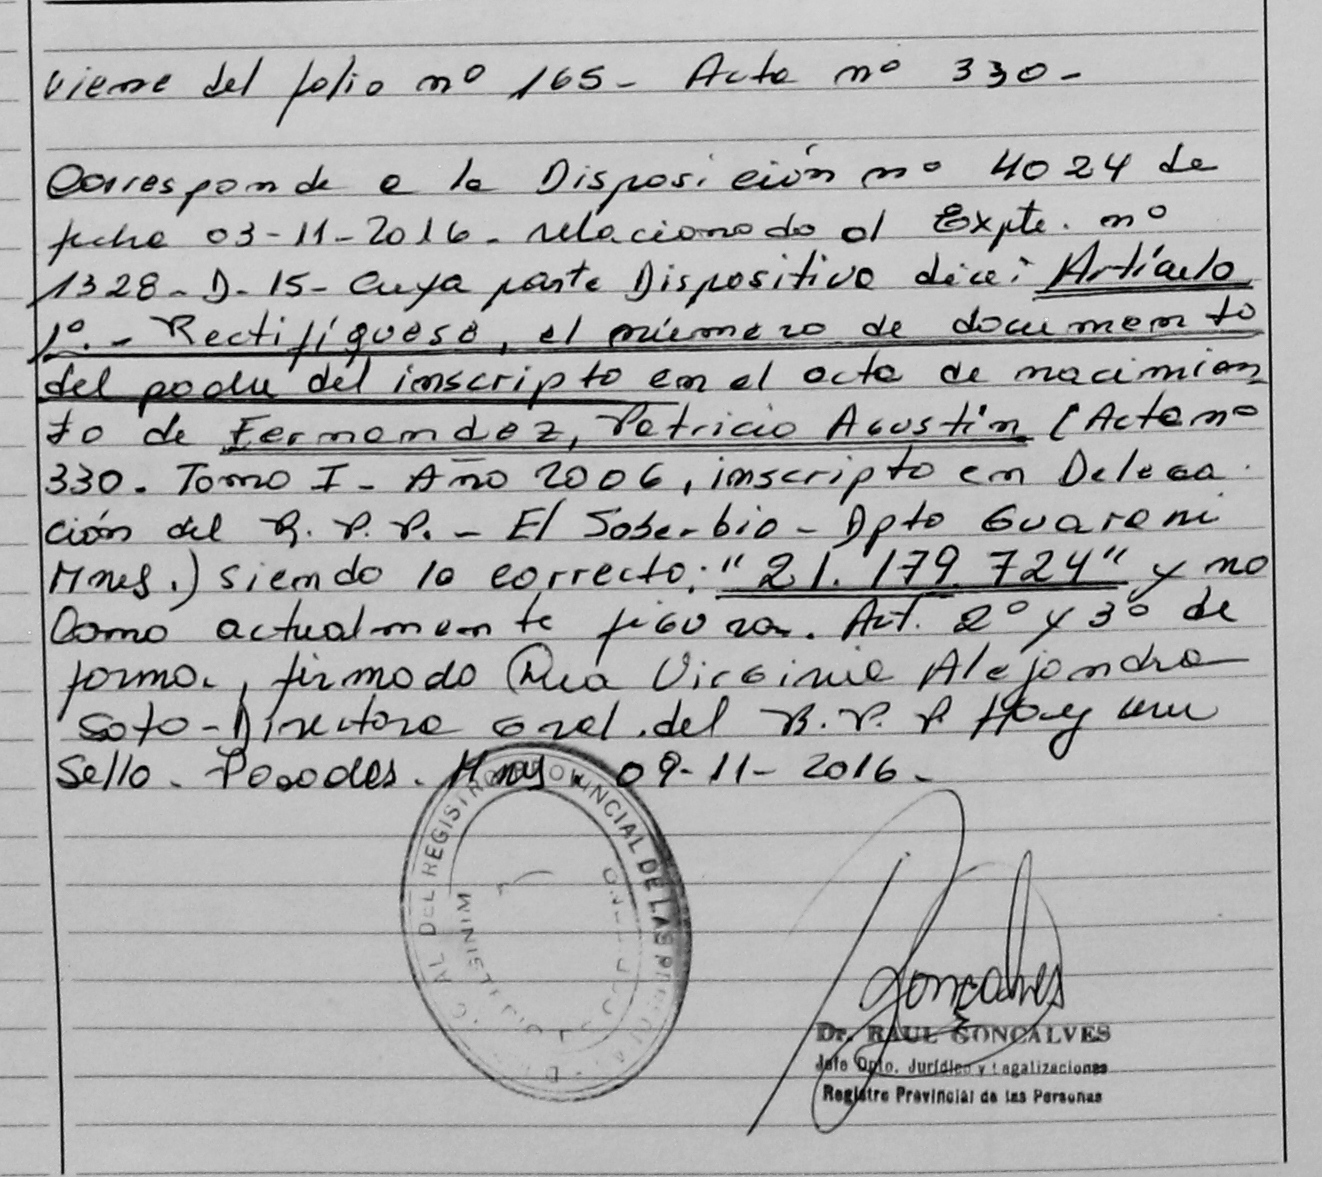 Viene del folio nº 165- Acta nº 330-
Corresponde a la Disposición nº 4024 de
fecha 03-11-2016- relacionado al Expte. nº
1328-D-15- Cuya parte Dispositiva dice: Artículo
1º.- Rectifíquese, el número de documento
del padre del inscripto en el acta de nacimien
to de Fernandez, Patricio Agustín (Acta nº
330. Tomo I- Año 2006, inscripto en Delega
ción del R.P.P. - El Soberbio - Dpto Guarani
Mnes.) siendo lo correcto: "21.179.724" y no
Como actualmente figura. Art. 2º y 3º de
forma., firmado Virginia Alejandra
Soto-Directora Gral. del R.P.P Hay un
Sello. Posadas. Mnes. 09-11-2016-
DEL REGISTRO PROVINCIAL DE LAS
MINIST
GOBIERNO
Goncalves
Dr. RAUL GONCALVES
Jefe Dpto. Jurídico y Legalizaciones
Registro Provincial de las Personas